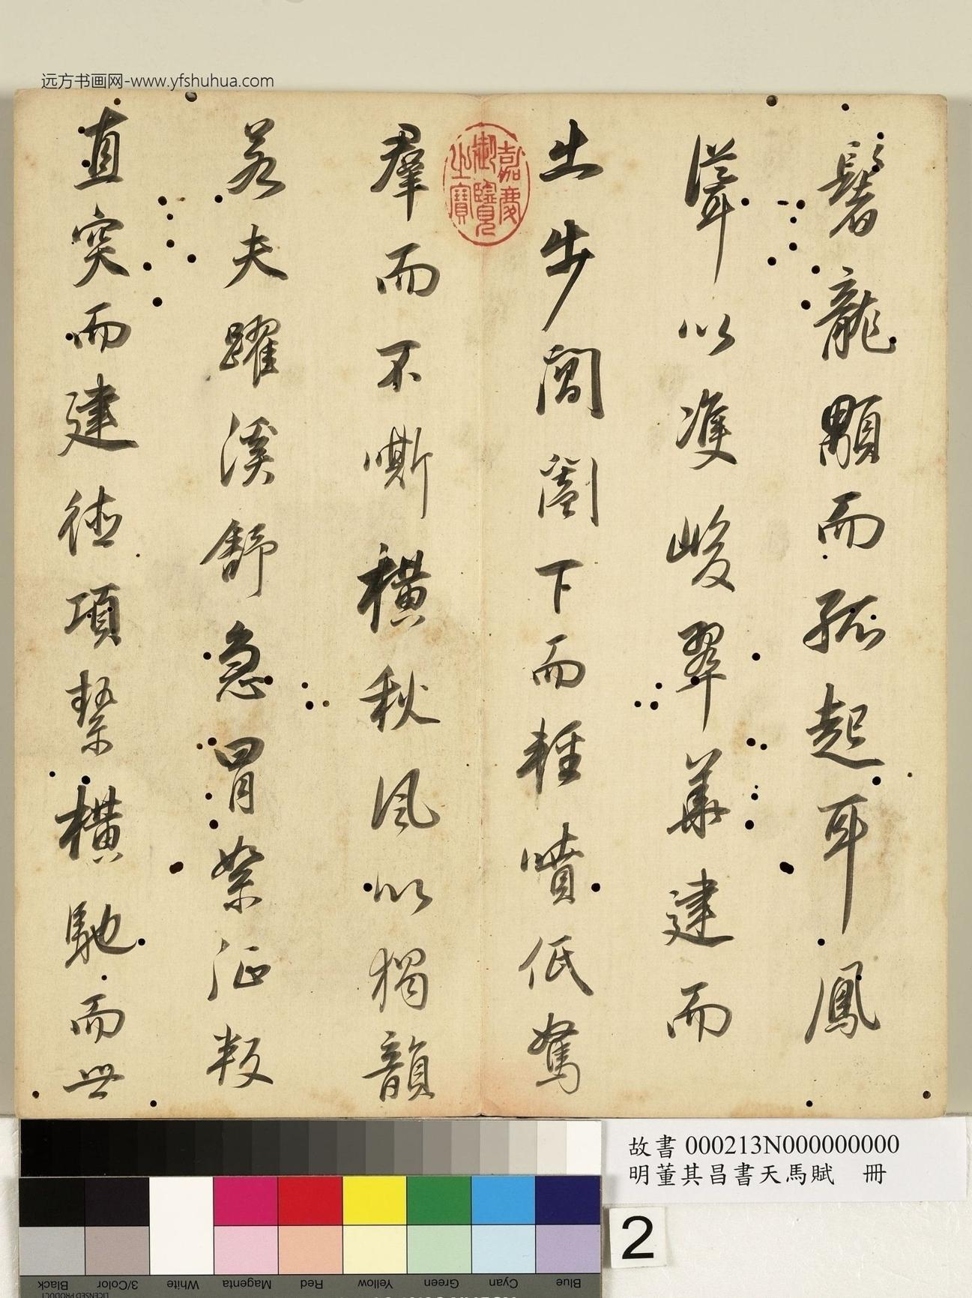 远方书画网-www.yfshuhua.com
鬐龍顒而孤起耳鳳
聳以雙峻翠華建而
出步閶闔下而輕噴低駑
羣而不嘶橫秋風以獨韻
若夫躍溪舒急冒絮征叛
直突而建德項縶橫馳而世
嘉慶御覽之寶
故書 000213N000000000
明董其昌書天馬賦 冊
2
Black 3/Color White Magenta Red Yellow Green Cyan Blue
LICENSED PRODUCT